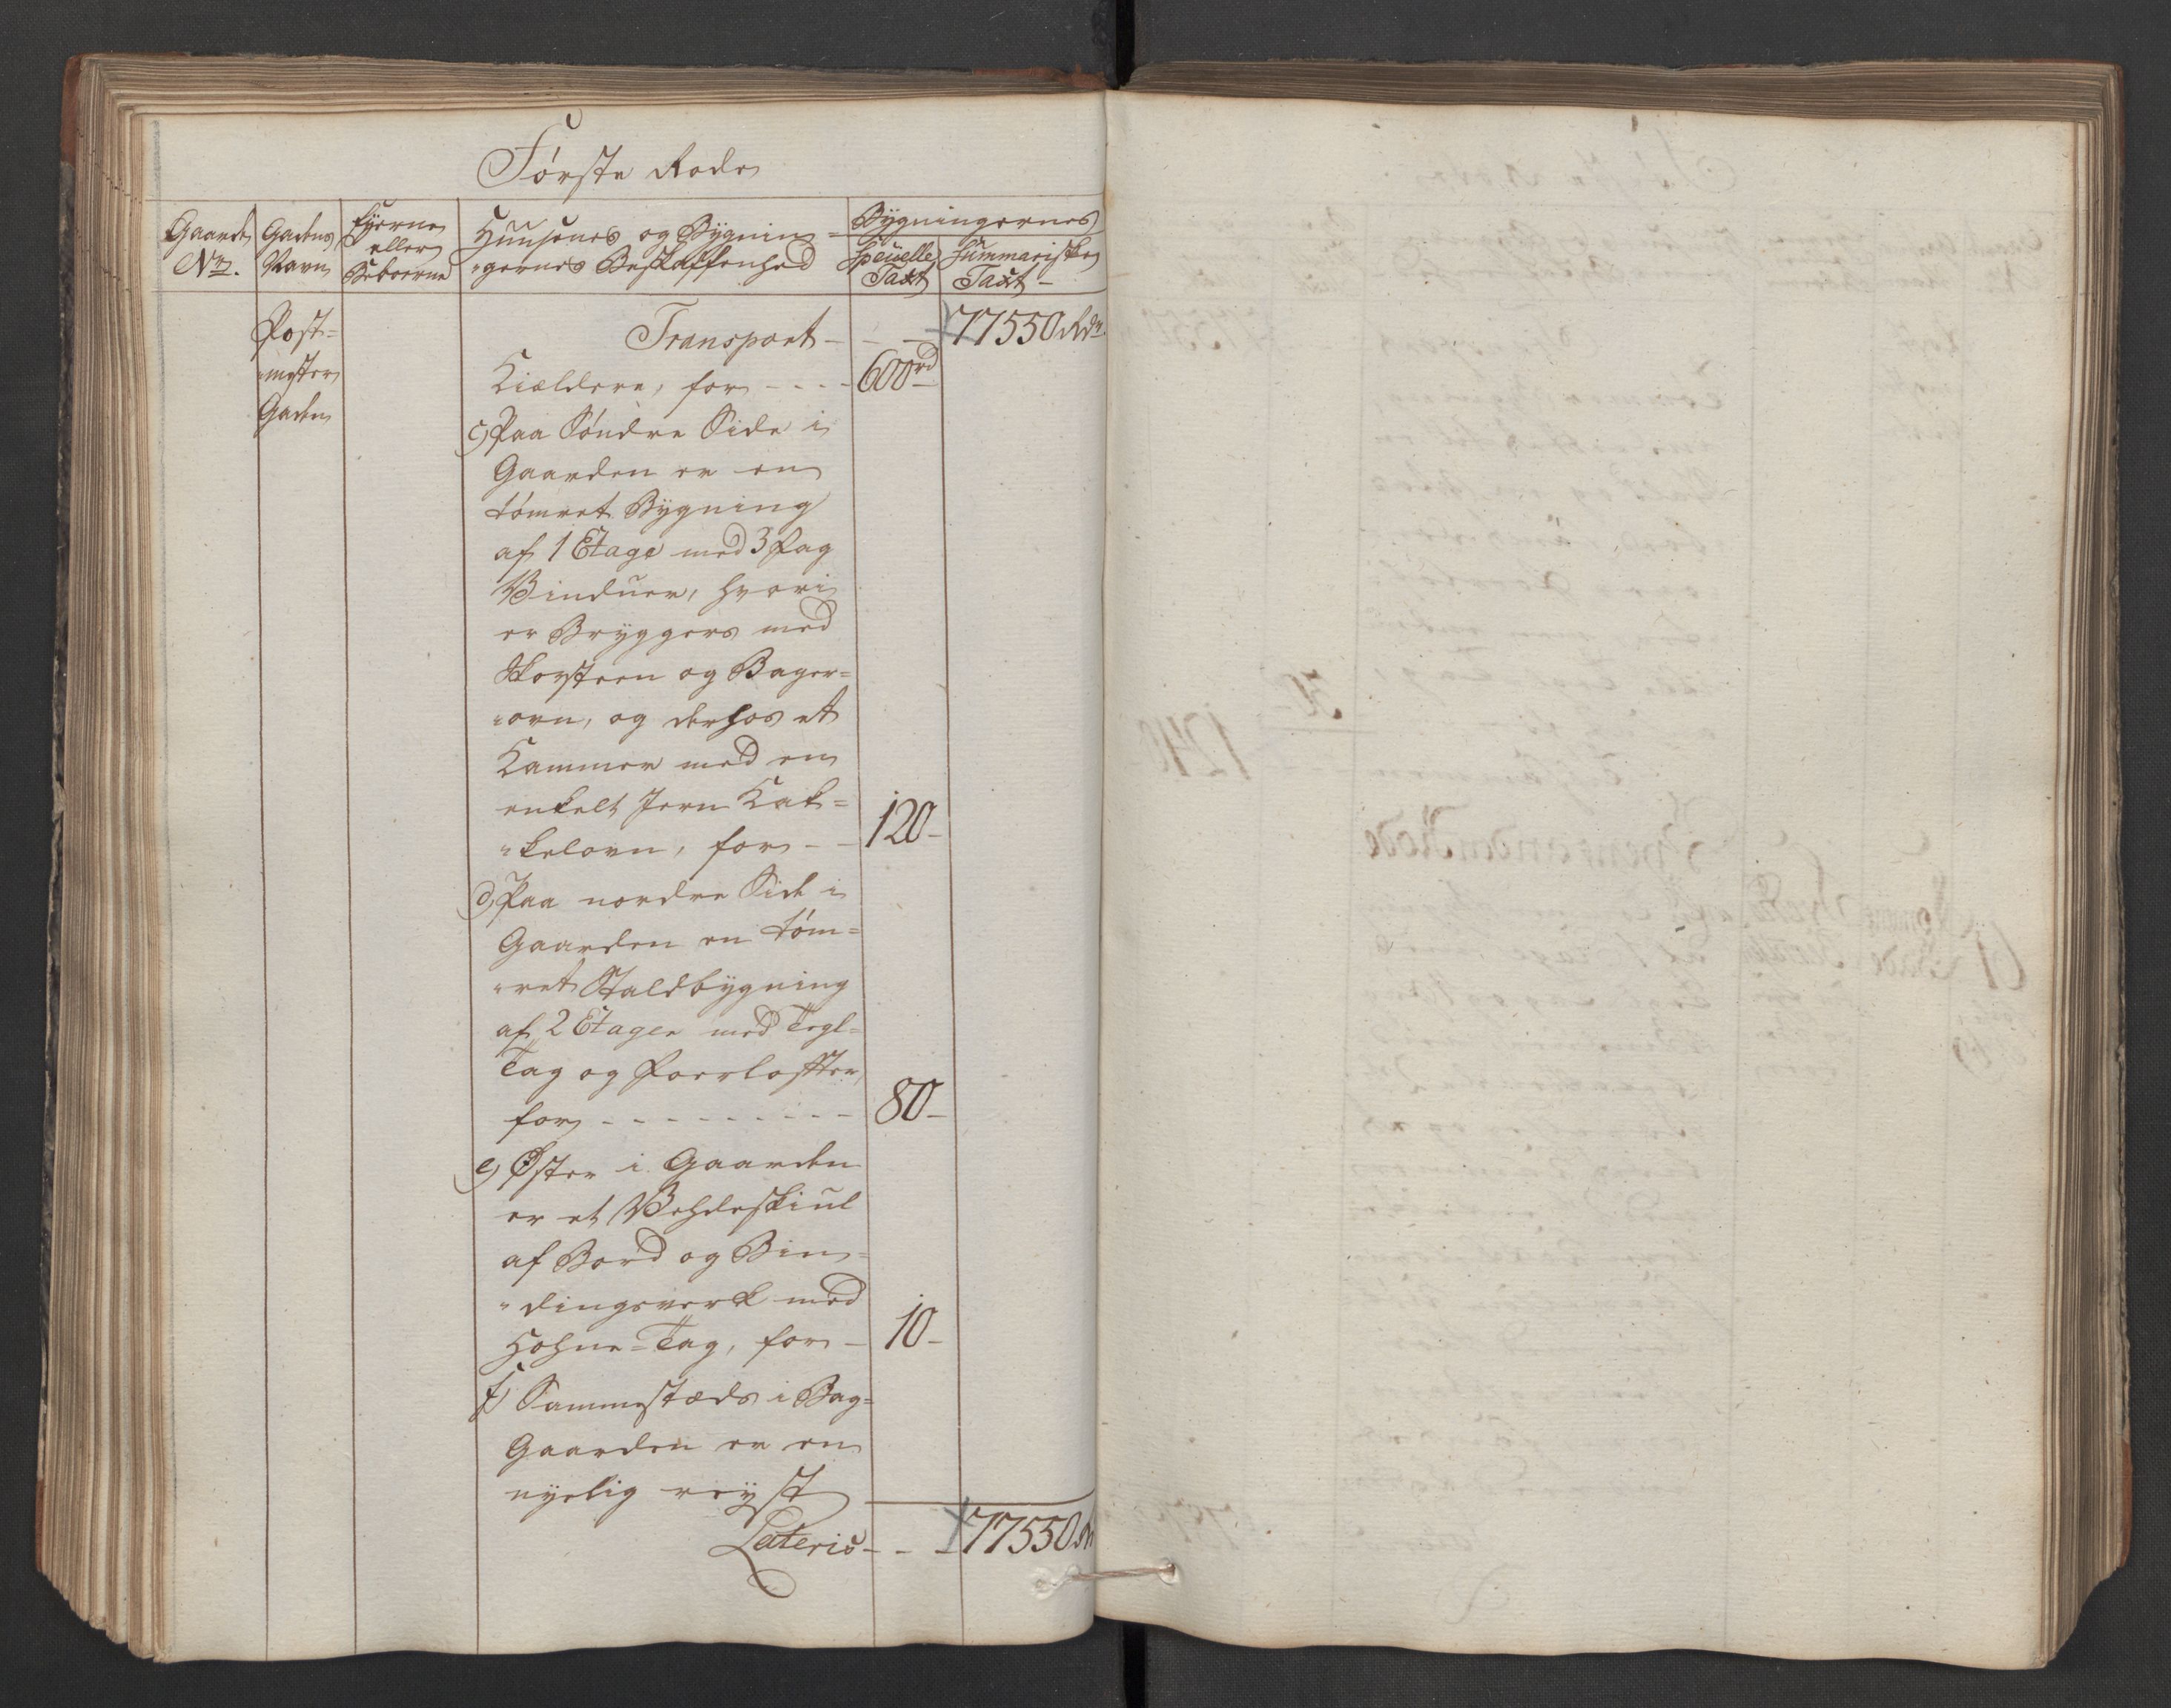 Første Rode
Gaards No. | Gadens Navn | Eyerne eller Beboerne | Huusenes og Bygnin= "gernes Beskaffenhed | Bygningernes Specielle Taxt | Summariske Taxt -
Post=
"mester
Gaden
Transport - - - 77550 Rdr.
Kieldere, for - - - - 600 rd
c) Paa Søndre Side i
Gaarden er en
tømret Bygning
af 1 Etage med 3 Fag
Vinduer, hvori
er Bryggers med
Skorsteen og Bager=
"ovn, og derhos et
Kammer med en
enkelt Jern Kak=
"kelovn, for - - 120 -
d) Paa nordre Side i
Gaarden en tøm=
"ret Staldbygning
af 2 Etager med Tegl=
Tag og Foerlofter,
for - - - - - - - - 80 -
e) Øster i Gaarden
er et Vehdeskiul
af Bord og Bin=
"dingsverk med
Hohne=Tag, for - 10 -
f) Sammestæds i Bag=
Gaarden er en
nyelig reyst
Lateris - - - 77550